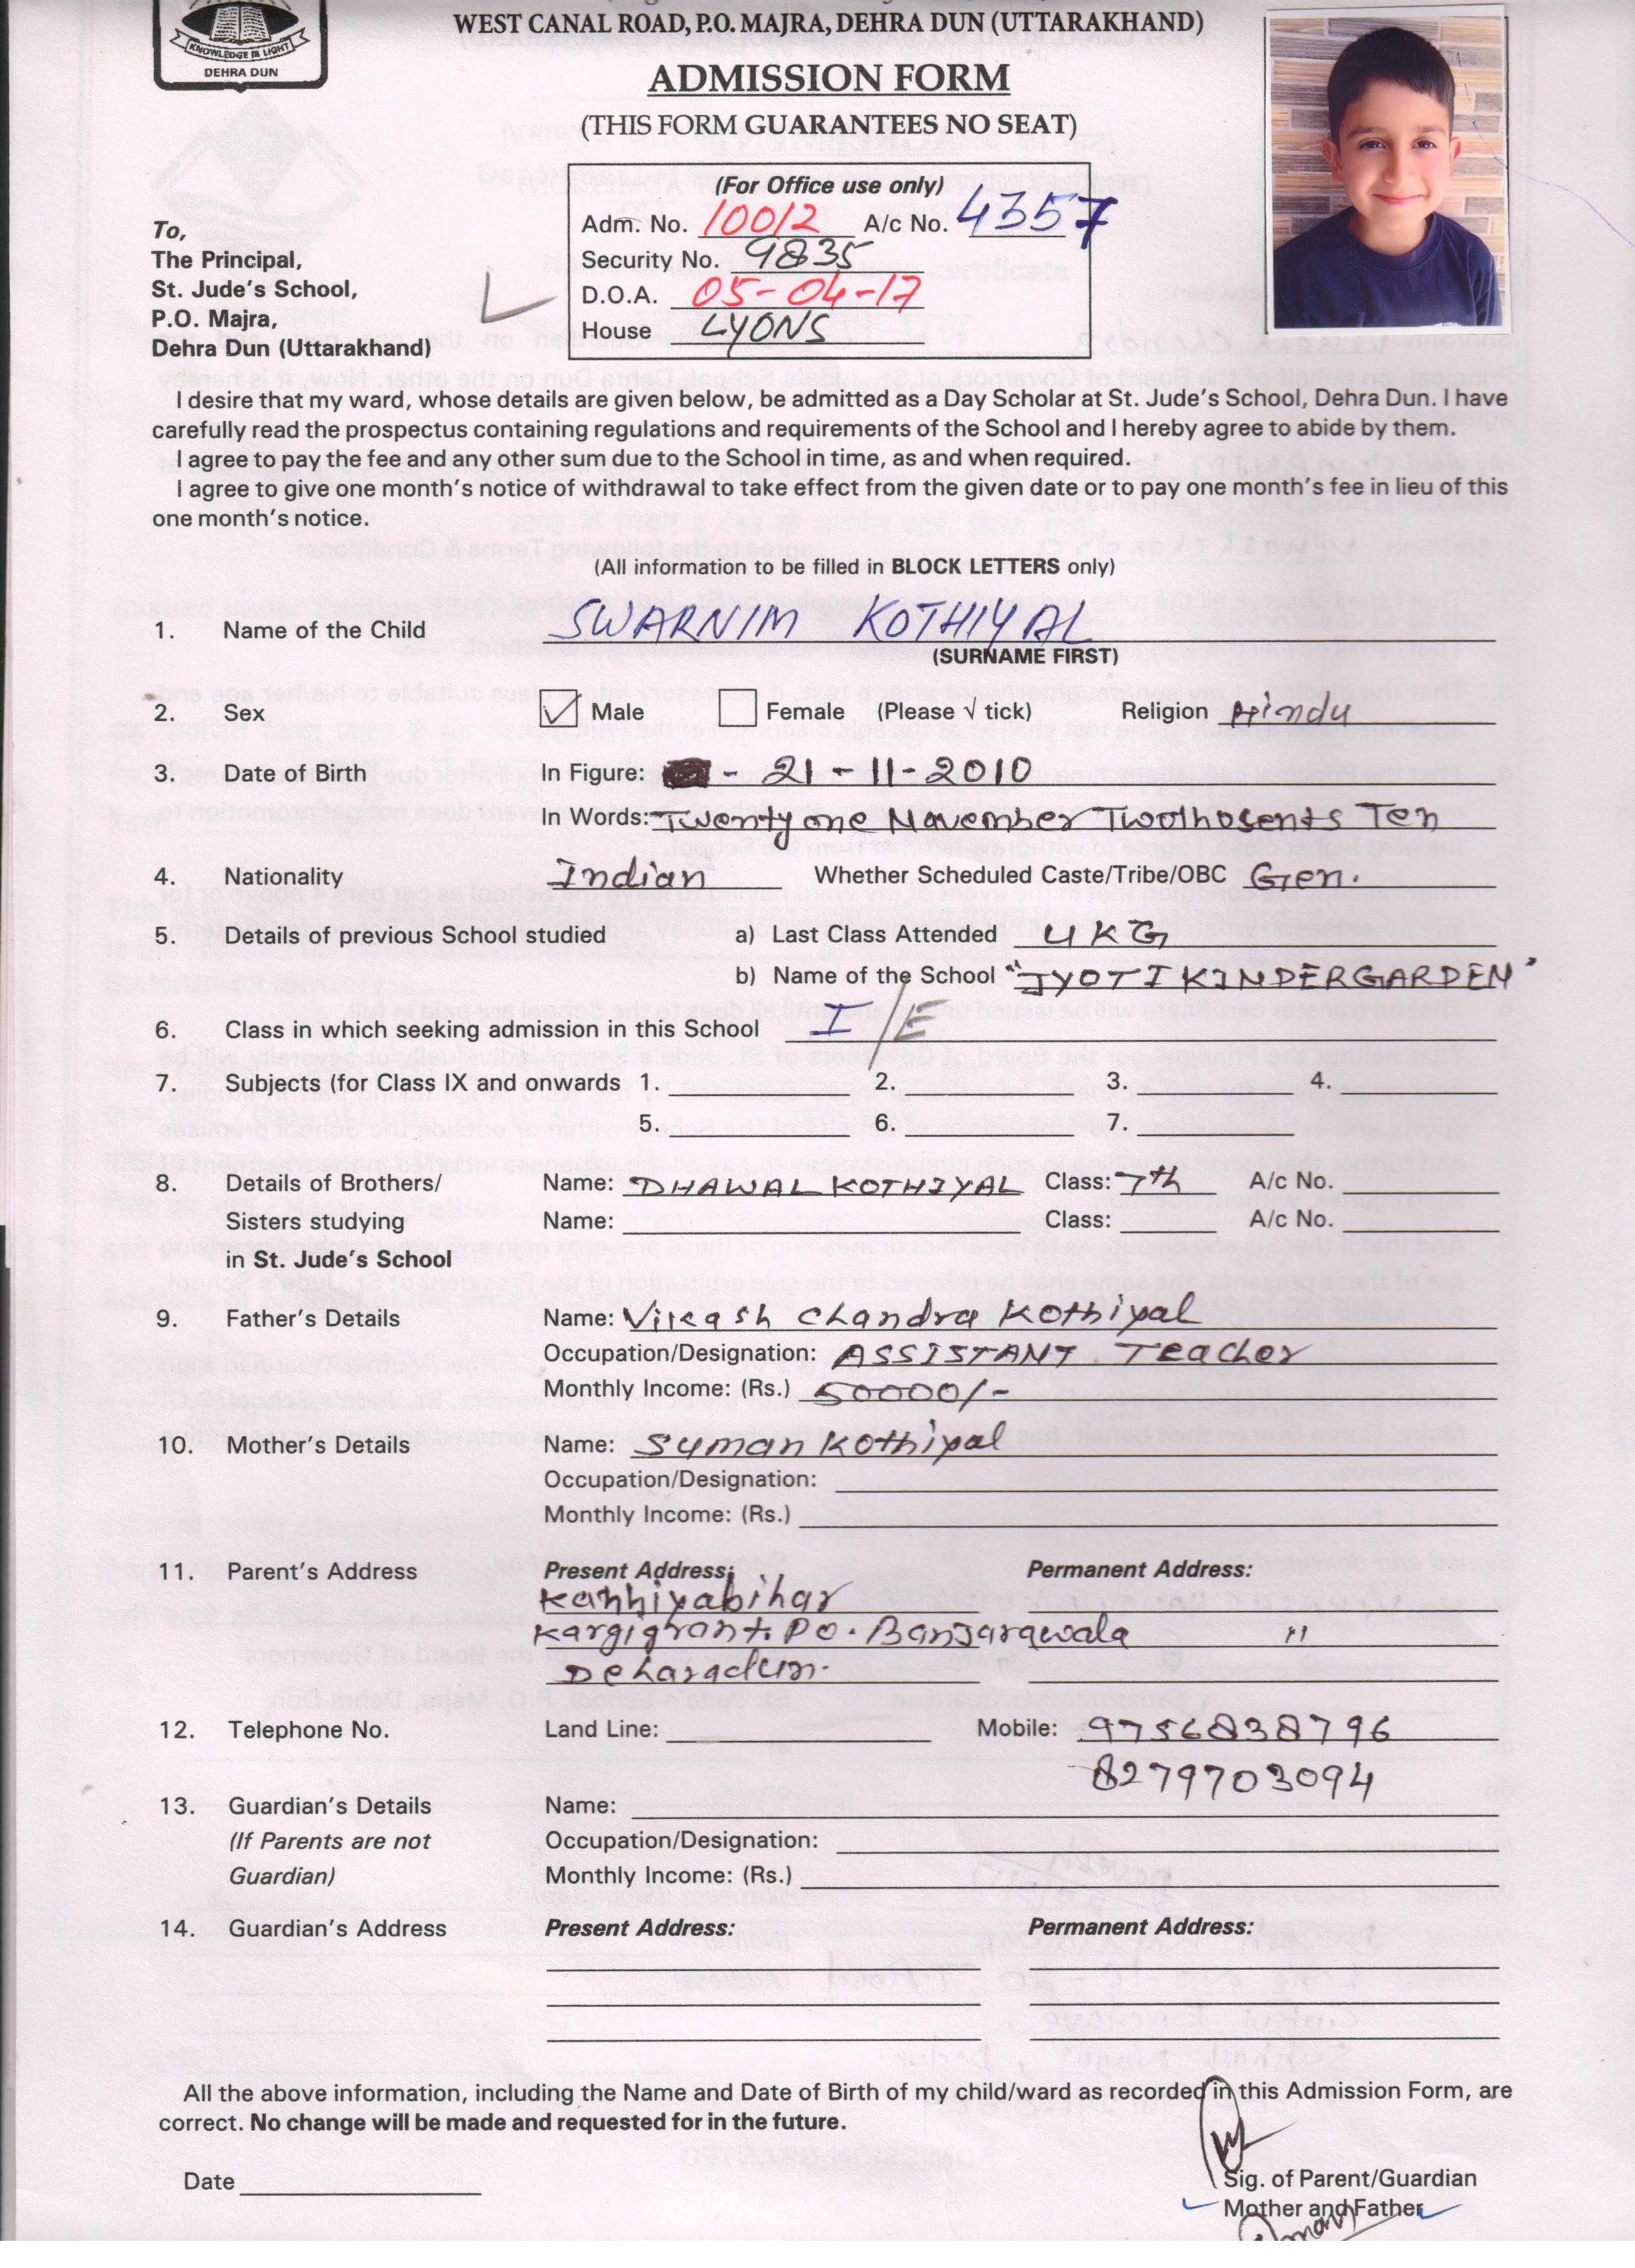 KNOWLEDGE IS LIGHT
DEHRA DUN
WEST CANAL ROAD, P.O. MAJRA, DEHRA DUN (UTTARAKHAND)
ADMISSION FORM
(THIS FORM GUARANTEES NO SEAT)
(For Office use only)
Adm. No. 10012 A/c No. 4357
Security No. 9835
D.O.A. 05-04-17
House LYONS
To,
The Principal,
St. Jude's School,
P.O. Majra,
Dehra Dun (Uttarakhand)
I desire that my ward, whose details are given below, be admitted as a Day Scholar at St. Jude's School, Dehra Dun. I have
carefully read the prospectus containing regulations and requirements of the School and I hereby agree to abide by them.
I agree to pay the fee and any other sum due to the School in time, as and when required.
I agree to give one month's notice of withdrawal to take effect from the given date or to pay one month's fee in lieu of this
one month's notice.
(All information to be filled in BLOCK LETTERS only)
1. Name of the Child SWARNIM KOTHIYAL
(SURNAME FIRST)
2. Sex Male Female (Please √ tick) Religion Hindu
3. Date of Birth In Figure: - 21-11-2010
In Words: Twenty one November Twothosents Ten
4. Nationality Indian Whether Scheduled Caste/Tribe/OBC Gen.
5. Details of previous School studied a) Last Class Attended UKG
b) Name of the School "JYOTI KINDERGARDEN"
6. Class in which seeking admission in this School I/E
7. Subjects (for Class IX and onwards 1. 2. 3. 4.
5. 6. 7.
8. Details of Brothers/ Name: DHAWAL KOTHIYAL Class: 7th A/c No.
Sisters studying Name: Class: A/c No.
in St. Jude's School
9. Father's Details Name: Vikash Chandra Kothiyal
Occupation/Designation: ASSISTANT. Teacher
Monthly Income: (Rs.) 50000/-
10. Mother's Details Name: Suman Kothiyal
Occupation/Designation:
Monthly Income: (Rs.)
11. Parent's Address Present Address: Permanent Address:
Kanhiyabihar
Kargigrant. PO. Banjarawala "
Deharadun.
12. Telephone No. Land Line: Mobile: 9756838796
8279703094
13. Guardian's Details Name:
(If Parents are not Occupation/Designation:
Guardian) Monthly Income: (Rs.)
14. Guardian's Address Present Address: Permanent Address:
All the above information, including the Name and Date of Birth of my child/ward as recorded in this Admission Form, are
correct. No change will be made and requested for in the future.
Date
Sig. of Parent/Guardian
Mother and Father